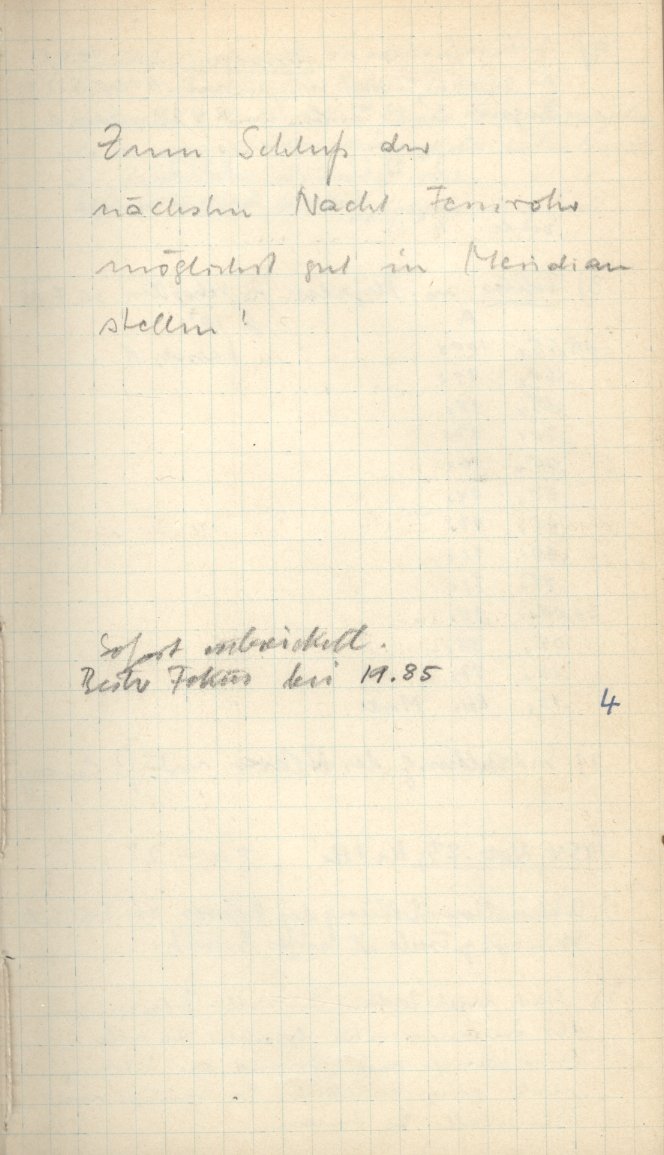 Zum Schluß der
nächsten Nacht Fernrohr
möglichst gut in Meridian
stellen!
Sofort entwickelt.
Bester Fokus bei 19.85
4